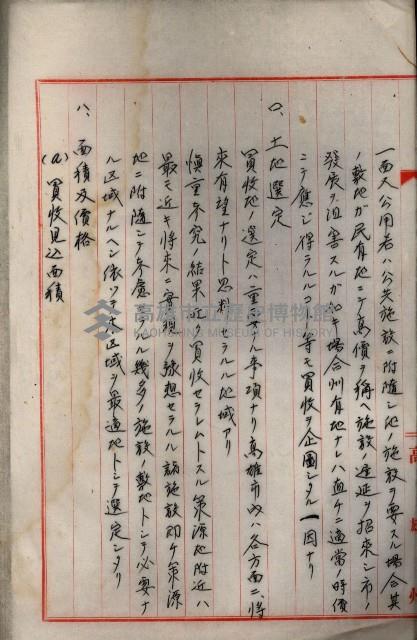 一面又公用若ハ公共施設ニ附随シ他ノ施設ヲ要スル場合其
ノ敷地ガ民有地ニテ高價ヲ稱ヘ施設ノ遅延ヲ招来シ市ノ
発展ヲ沮害スルガ如キ場合州有地ナレハ直ケニ適當ノ時價
ニテ應ジ得ラルル等モ買收ヲ企圖シタル一因ナリ
〇、土地選定
買收地ノ選定ハ重要ナル事項ナリ高雄市内ハ各方面ニ、将
来有望ナリト思料セラルル地域アリ
慎重考究ノ結果近ク買收セラレムトスル築源地附近ハ
最モ近キ将来ニ実現ヲ豫想セラルル諸施設即ケ築源
地ニ附随シテ考慮セラル幾多ノ施設ノ敷地トシテ必要ナ
ル区域ナルヘシ依ツテ本区域ヲ最適地トシテ選定シタリ
八、面積及價格
(a) 買收見込面積
高雄市立歷史博物館
KAOHSIUNG MUSEUM OF HISTORY
高雄州